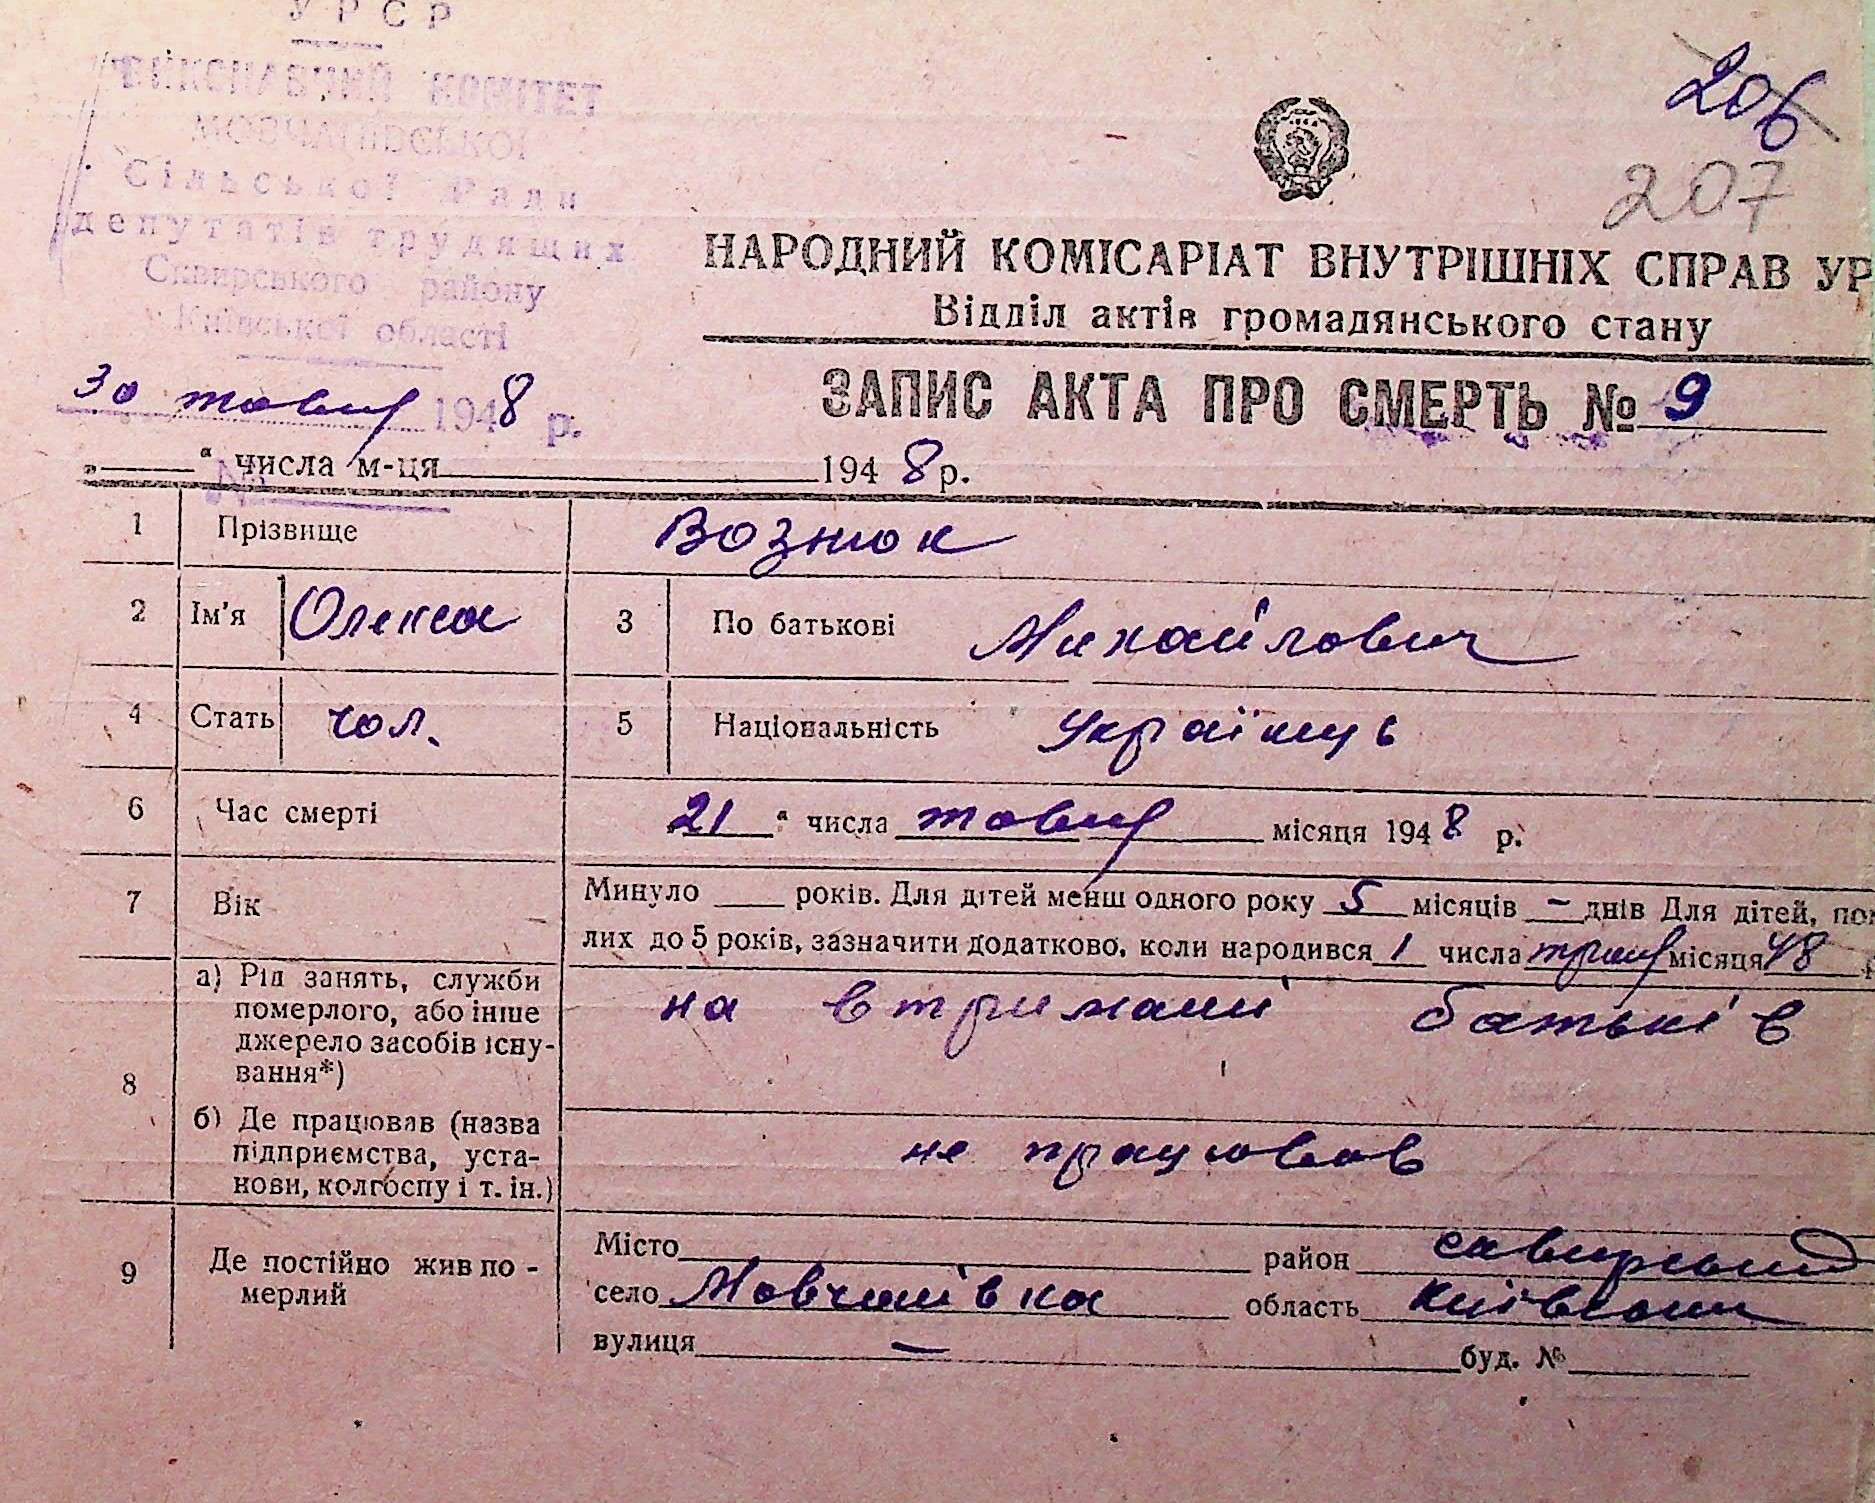 УРСР
ВИКОНАВЧИЙ КОМІТЕТ
МОВЧАНІВСЬКОЇ
Сільської Ради
депутатів трудящих
Сквирського району
Київської області
30 жовтня 1948 р.
№
206
207
НАРОДНИЙ КОМІСАРІАТ ВНУТРІШНІХ СПРАВ УР
Відділ актів громадянського стану
ЗАПИС АКТА ПРО СМЕРТЬ № 9
„ “ числа м-ця 1948 р.
1 Прізвище Вознюк
2 Ім'я Олекса 3 По батькові Михайлович
4 Стать чол. 5 Національність Українець
6 Час смерті 21 “ числа жовтня місяця 1948 р.
7 Вік Минуло років. Для дітей менш одного року 5 місяців – днів Для дітей, пом
лих до 5 років, зазначити додатково, коли народився 1 числа травня місяця 48
8 а) Рід занять, служби померлого, або інше джерело засобів існу-
вання*) на втримані батьків
б) Де працював (назва підприємства, уста-
нови, колгоспу і т. ін.) не працював
9 Де постійно жив по-
мерлий
Місто район Сквирський
село Мовчанівка область Київська
вулиця — буд. №